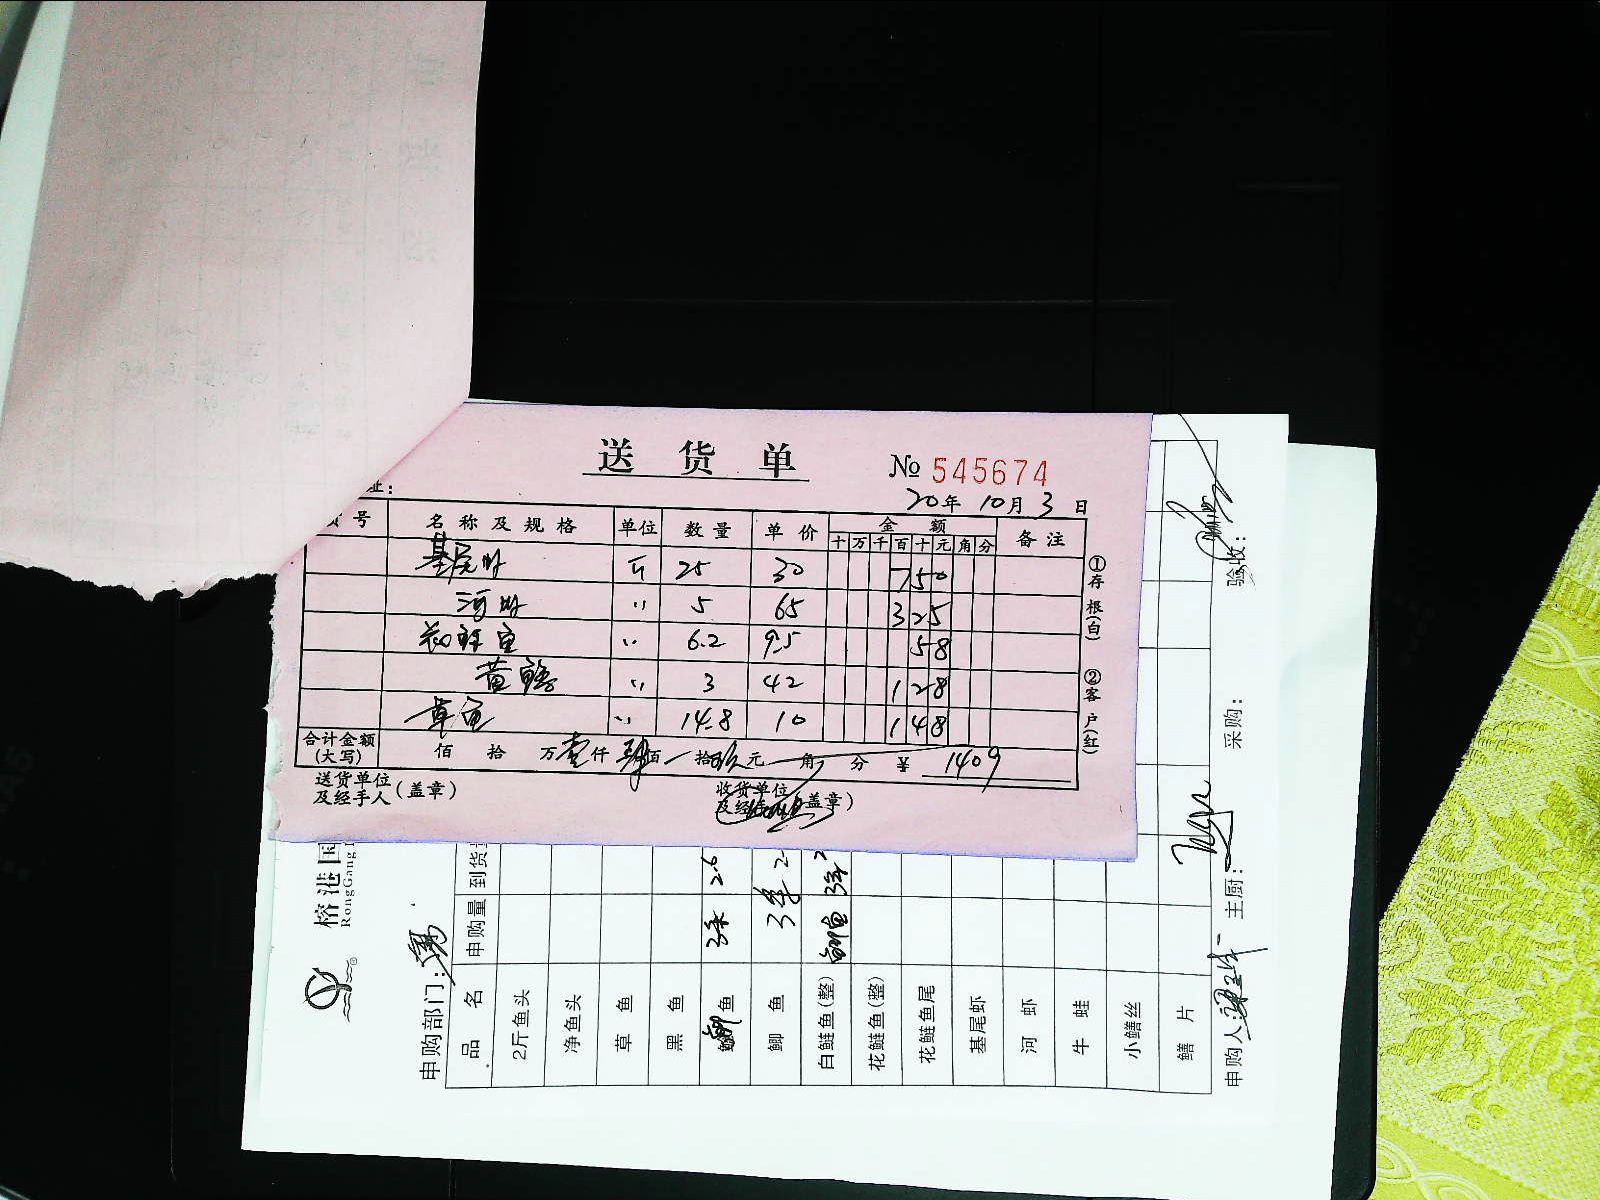 送货单
№ 545674
址:
20年 10月 3日
货号 名称及规格 单位 数量 单价 金额 备注
十 万 千 百 十 元 角 分
基尾虾 斤 25 30 750
河虾 〃 5 65 325
〃 6.2 9.5 58
黄鳝 〃 3 42 128
草鱼 〃 14.8 10 148
合计金额(大写) 佰 拾 万壹仟肆佰一拾玖元 角 分 ¥ 1409
送货单位及经手人(盖章) 收货单位及经手人(盖章)
①存根(白) ②客户(红)
榕港国
RongGang
申购部门:
品名 申购量 到货量
2斤鱼头
净鱼头
草鱼
黑鱼
鱼 3条 2.6
鲫鱼
白鲢鱼(整)
花鲢鱼(整)
花鲢鱼尾
基尾虾
河虾
牛蛙
小鳝丝
鳝片
申购人: 主厨: 采购: 验收: